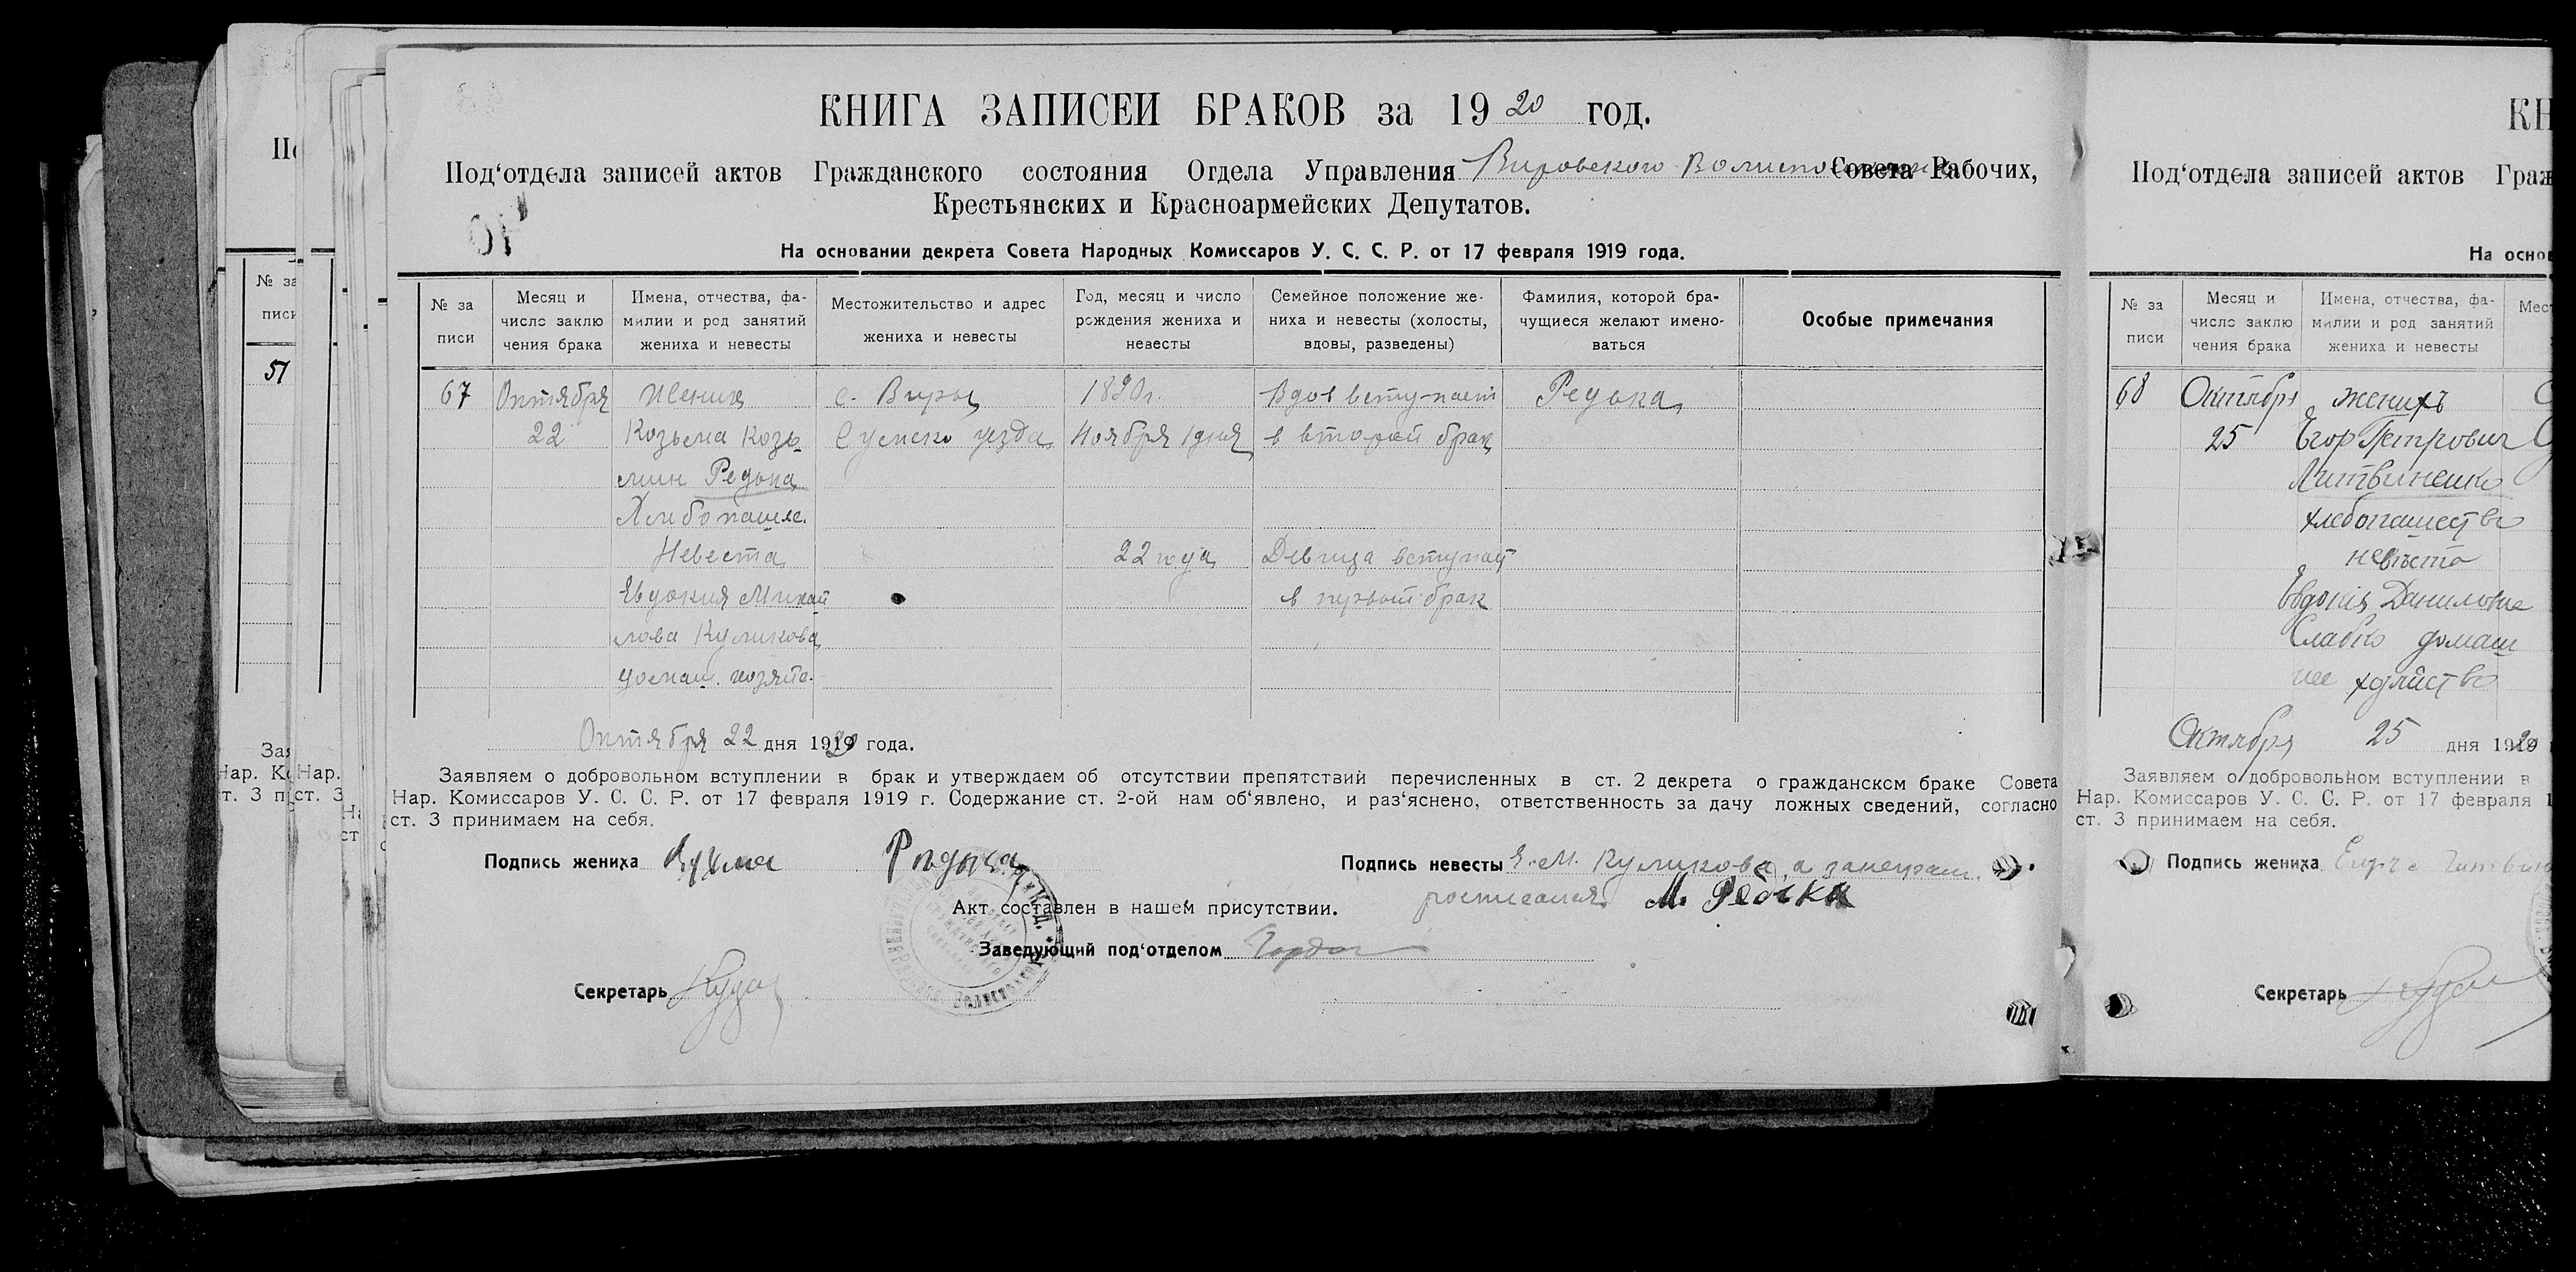 КНИГА ЗАПИСЕЙ БРАКОВ за 1920 год.
Под‘отдела записей актов Гражданского состояния Отдела Управления Вировского Волисполкома Совета Рабочих,
Крестьянских и Красноармейских Депутатов.
На основании декрета Совета Народных Комиссаров У. С. С. Р. от 17 февраля 1919 года.
№ за писи
Месяц и число заклю чения брака
Имена, отчества, фа- милии и род занятий жениха и невесты
Местожительство и адрес жениха и невесты
Год, месяц и число рождения жениха и невесты
Семейное положение же- ниха и невесты (холосты, вдовы, разведены)
Фамилия, которой бра- чущиеся желают имено- ваться
Особые примечания
67 Октября Жених с. Виры 1890г. Вдов вступает Редька
22 Козьма Козь Сумско уезда Ноября 1дня в второй брак
мин Редька
Хлибопаше.
Невеста 22 года Девица вступает
Евдокия Михай в первый брак
лова Куликова
домаш. хозяйс.
Октября 22 дня 1920 года.
Заявляем о добровольном вступлении в брак и утверждаем об отсутствии препятствий перечисленных в ст. 2 декрета о гражданском браке Совета
Нар. Комиссаров У. С. С. Р. от 17 февраля 1919 г. Содержание ст. 2-ой нам об‘явлено, и раз‘яснено, ответственность за дачу ложных сведений, согласно
ст. 3 принимаем на себя.
Подпись жениха Кузма Редька
Подпись невесты Е. М. Куликова, а занеграм.
росписался М. Редька
Акт составлен в нашем присутствии.
Заведующий под‘отделом
Секретарь
КН
Под‘отдела записей актов Граж
На основ
№ за писи
Месяц и число заклю чения брака
Имена, отчества, фа- милии и род занятий жениха и невесты
Мест
68 Октября женихъ
25 Егор Петрович
Литвиненко
хлебопашество
невъста
Евдокия Даниловна
Слабко домаш
нее хозяйство
Октября 25 дня 1920
Заявляем о добровольном вступлении в
Нар. Комиссаров У. С. С. Р. от 17 февраля 1
ст. 3 принимаем на себя.
Подпись жениха
Секретарь
По
№ за
писи
51
Зая
Нар. Ко
ст. 3 п
Нар.
ст. 3